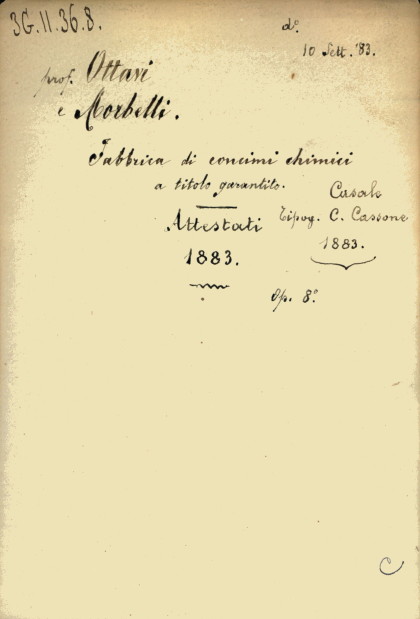 3G.II.36.8.
d.º
10 Sett. '83.
prof. Ottavi
e Morbelli.
Fabbrica di concimi chimici
a titolo garantito.
Attestati
1883.
Casale
Tipog. C. Cassone
1883.
Op. 8.º
C